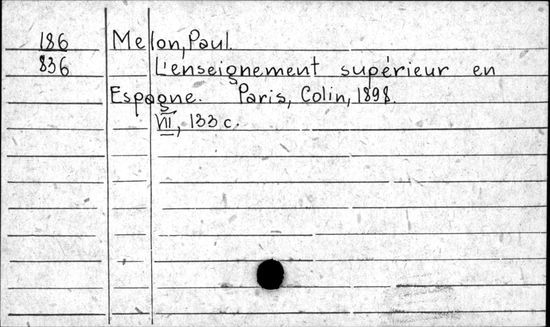 186 Melon, Paul.
836 L'enseignement supérieur en
Espagne. Paris, Colin, 1898.
VII, 133 c.